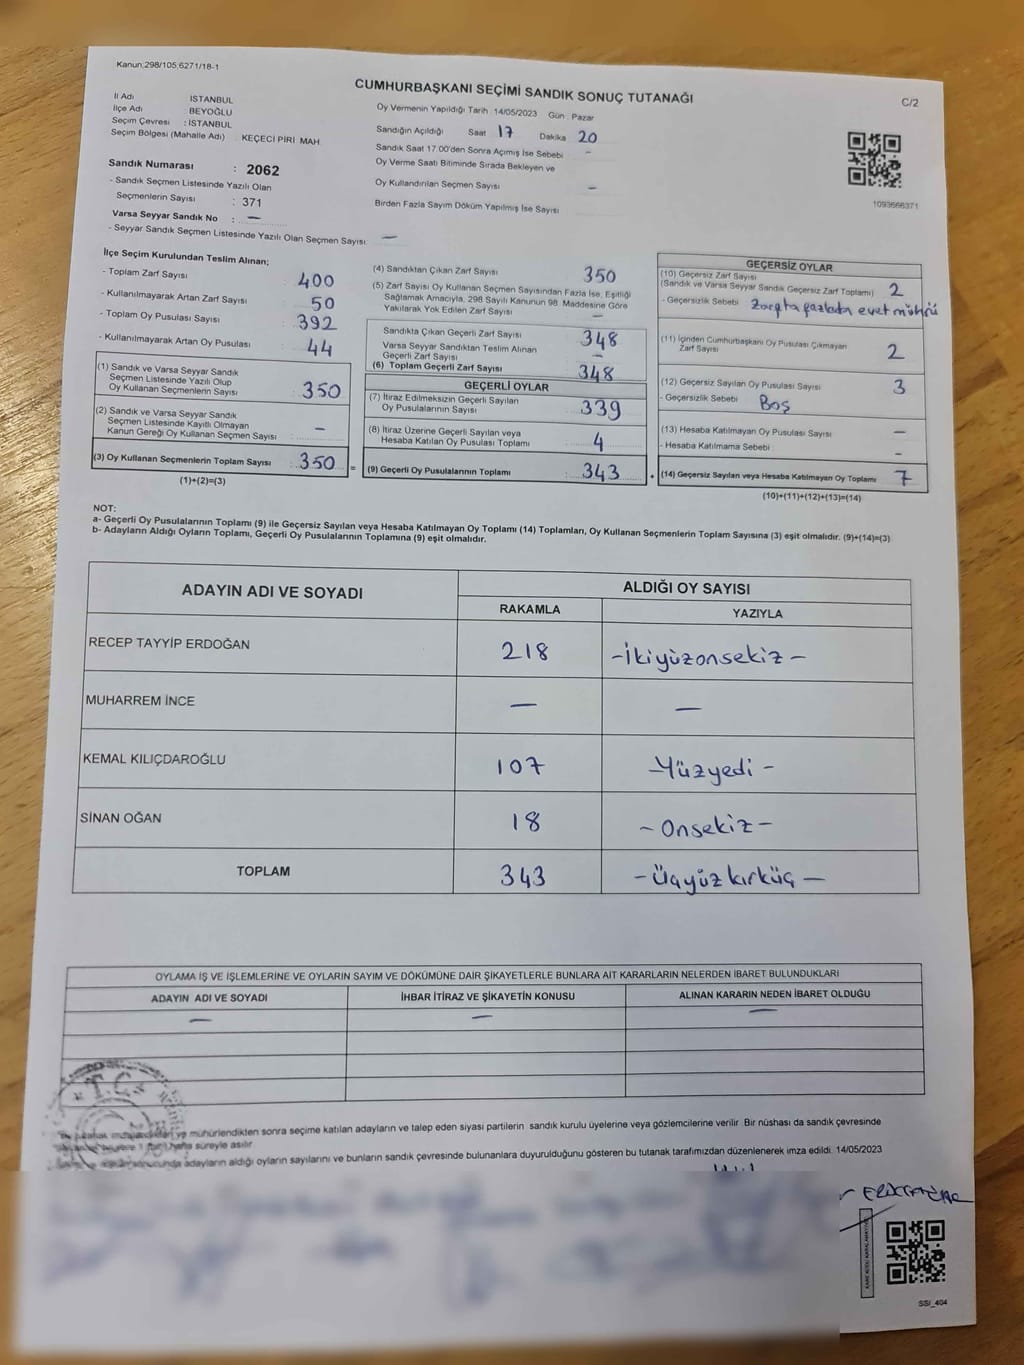 Kanun;298/105,6271/18-1
CUMHURBAŞKANI SEÇİMİ SANDIK SONUÇ TUTANAĞI
C/2
İl Adı İSTANBUL
İlçe Adı BEYOĞLU
Seçim Çevresi : İSTANBUL
Seçim Bölgesi (Mahalle Adı) KEÇECİ PİRİ MAH
Sandık Numarası : 2062
- Sandık Seçmen Listesinde Yazılı Olan
Seçmenlerin Sayısı : 371
Varsa Seyyar Sandık No : —
- Seyyar Sandık Seçmen Listesinde Yazılı Olan Seçmen Sayısı —
Oy Vermenin Yapıldığı Tarih 14/05/2023 Gün : Pazar
Sandığın Açıldığı Saat 17 Dakika 20
Sandık Saat 17.00'den Sonra Açımış İse Sebebi -
Oy Verme Saati Bitiminde Sırada Bekleyen ve
Oy Kullandırılan Seçmen Sayısı —
Birden Fazla Sayım Döküm Yapılmış İse Sayısı
1093666371
İlçe Seçim Kurulundan Teslim Alınan;
- Toplam Zarf Sayısı : 400
- Kullanılmayarak Artan Zarf Sayısı : 50
- Toplam Oy Pusulası Sayısı : 392
- Kullanılmayarak Artan Oy Pusulası : 44
(1) Sandık ve Varsa Seyyar Sandık
Seçmen Listesinde Yazılı Olup
Oy Kullanan Seçmenlerin Sayısı : 350
(2) Sandık ve Varsa Seyyar Sandık
Seçmen Listesinde Kayıtlı Olmayan
Kanun Gereği Oy Kullanan Seçmen Sayısı : —
(3) Oy Kullanan Seçmenlerin Toplam Sayısı : 350 =
(1)+(2)=(3)
(4) Sandıktan Çıkan Zarf Sayısı 350
(5) Zarf Sayısı Oy Kullanan Seçmen Sayısından Fazla İse, Eşitliği
Sağlamak Amacıyla, 298 Sayılı Kanunun 98. Maddesine Göre
Yakılarak Yok Edilen Zarf Sayısı —
Sandıkta Çıkan Geçerli Zarf Sayısı : 348
Varsa Seyyar Sandıktan Teslim Alınan
Geçerli Zarf Sayısı —
(6) Toplam Geçerli Zarf Sayısı : 348
GEÇERLİ OYLAR
(7) İtiraz Edilmeksizin Geçerli Sayılan
Oy Pusulalarının Sayısı : 339
(8) İtiraz Üzerine Geçerli Sayılan veya
Hesaba Katılan Oy Pusulası Toplamı : 4
(9) Geçerli Oy Pusulalarının Toplamı : 343 +
GEÇERSİZ OYLAR
(10) Geçersiz Zarf Sayısı
(Sandık ve Varsa Seyyar Sandık Geçersiz Zarf Toplamı) : 2
- Geçersizlik Sebebi zarfta fazladan evet mührü
(11) İçinden Cumhurbaşkanı Oy Pusulası Çıkmayan
Zarf Sayısı : 2
(12) Geçersiz Sayılan Oy Pusulası Sayısı : 3
- Geçersizlik Sebebi Boş
(13) Hesaba Katılmayan Oy Pusulası Sayısı : —
- Hesaba Katılmama Sebebi -
(14) Geçersiz Sayılan veya Hesaba Katılmayan Oy Toplamı : 7
(10)+(11)+(12)+(13)=(14)
NOT:
a- Geçerli Oy Pusulalarının Toplamı (9) ile Geçersiz Sayılan veya Hesaba Katılmayan Oy Toplamı (14) Toplamları, Oy Kullanan Seçmenlerin Toplam Sayısına (3) eşit olmalıdır. (9)+(14)=(3)
b- Adayların Aldığı Oyların Toplamı, Geçerli Oy Pusulalarının Toplamına (9) eşit olmalıdır.
ADAYIN ADI VE SOYADI ALDIĞI OY SAYISI
RAKAMLA YAZIYLA
RECEP TAYYİP ERDOĞAN 218 -İkiyüzonsekiz-
MUHARREM İNCE — —
KEMAL KILIÇDAROĞLU 107 -Yüzyedi-
SİNAN OĞAN 18 -Onsekiz-
TOPLAM 343 -Üçyüzkırküç-
OYLAMA İŞ VE İŞLEMLERİNE VE OYLARIN SAYIM VE DÖKÜMÜNE DAİR ŞİKAYETLERLE BUNLARA AİT KARARLARIN NELERDEN İBARET BULUNDUKLARI
ADAYIN ADI VE SOYADI İHBAR İTİRAZ VE ŞİKAYETİN KONUSU ALINAN KARARIN NEDEN İBARET OLDUĞU
— — —
T.C.
ve mühürlendikten sonra seçime katılan adayların ve talep eden siyasi partilerin sandık kurulu üyelerine veya gözlemcilerine verilir. Bir nüshası da sandık çevresinde
süreyle asılır.
sonucunda adayların aldığı oyların sayılarını ve bunların sandık çevresinde bulunanlara duyurulduğunu gösteren bu tutanak tarafımızdan düzenlenerek imza edildi. 14/05/2023
SSI_404